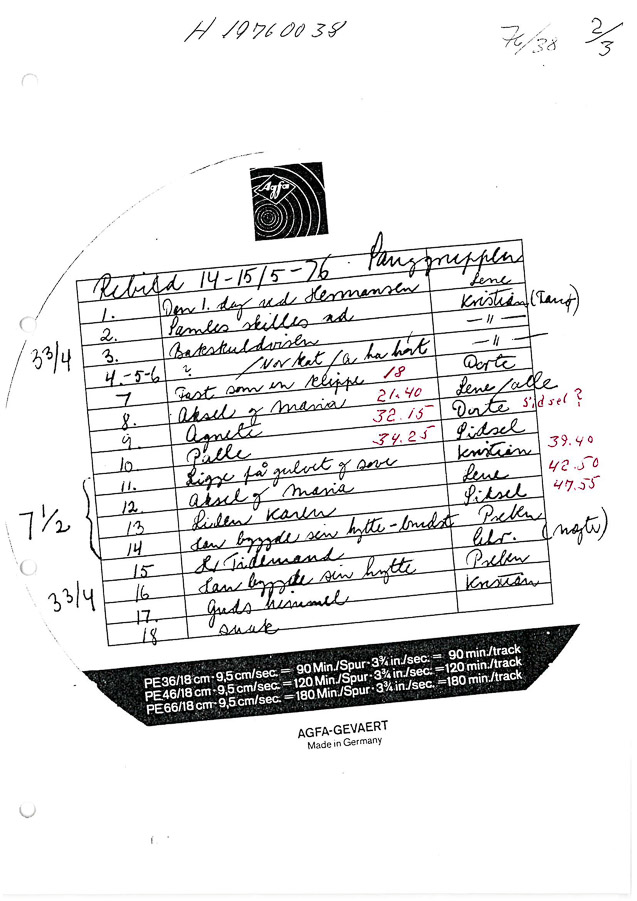 H 19760038
76/38 2/3
Agfa
Rebild 14-15/5-76 Panggruppen
1. Den 1. dag ved Hermansen Lene
2. Samles skilles ad Kristian (Tang)
3. Bakskuldvisen — " —
4.-5-6 ? / Nov Kat / a ha hørt — " —
7 Fast som en klippe 18 Dorte
8. Aksel og Maria 21.40 Lene / alle
9. Agnete 32.15 Dorte Sidsel ?
10 Palle 34.25 Sidsel
11. Ligge på gulvet og sove Kristian 39.40
12. Aksel og Maria Lene 42.50
13 Liden Karen Sidsel 47.55
14 Han byggde sin hytte - brudst Preben
15 Hr Tidemand Chr. (nøgte)
16 Han byggde sin hytte Preben
17. Guds himmel Kristian
18 snak
3 3/4
7 1/2
3 3/4
PE36/18 cm - 9,5 cm/sec. = 90 Min./Spur - 3¾ in./sec. = 90 min./track
PE46/18 cm - 9,5 cm/sec. = 120 Min./Spur - 3¾ in./sec. = 120 min./track
PE66/18 cm - 9,5 cm/sec. = 180 Min./Spur - 3¾ in./sec. = 180 min./track
AGFA-GEVAERT
Made in Germany